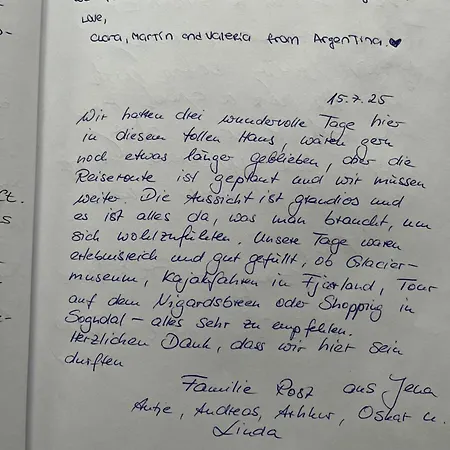 Love,
Clara, Martín and Valeria from Argentina.
15.7.25
Wir hatten drei wundervolle Tage hier
in diesem tollen Haus, wären gern
noch etwas länger geblieben, aber die
Reiseroute ist geplant und wir müssen
weiter. Die Aussicht ist grandios und
es ist alles da, was man braucht, um
sich wohlzufühlen. Unsere Tage waren
erlebnisreich und gut gefüllt, ob Glacier-
museum, Kajakfahren in Fjærland, Tour
auf dem Nigardsbreen oder Shopping in
Sogndal – alles sehr zu empfehlen.
Herzlichen Dank, dass wir hier sein
durften
Familie Post aus Jena
Antje, Andreas, Arthur, Oskar u.
Linda